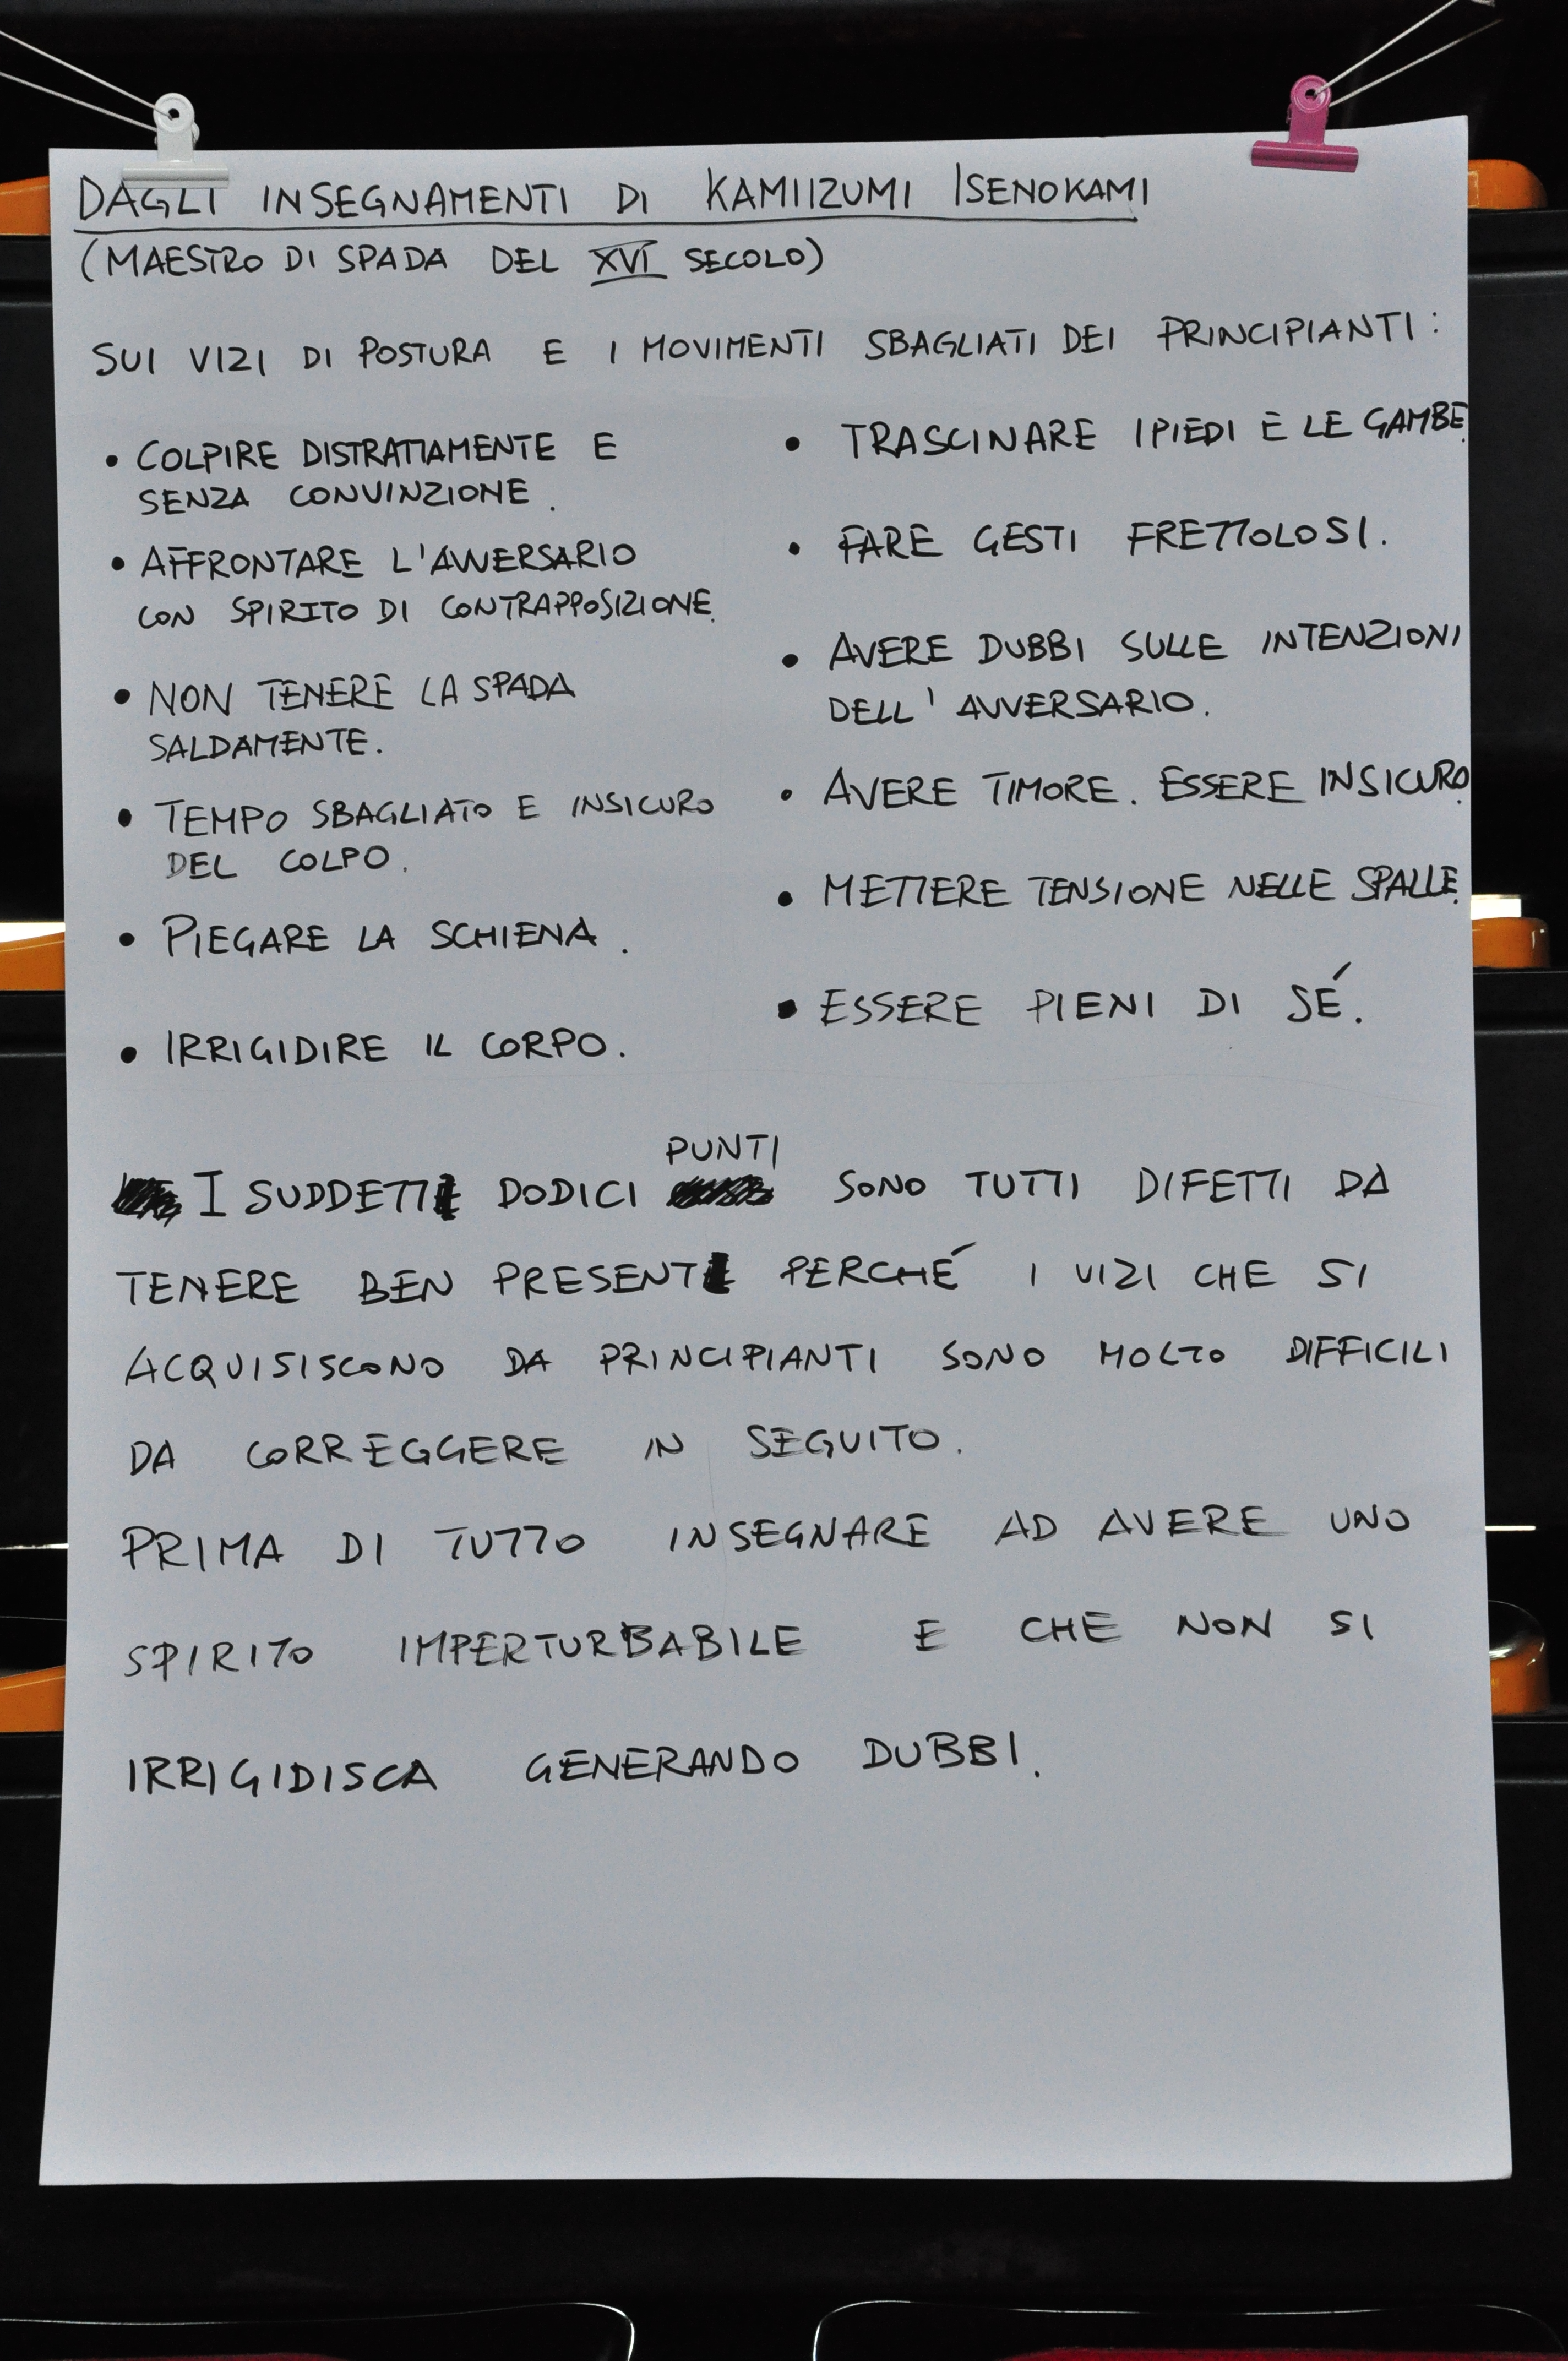 DAGLI INSEGNAMENTI DI KAMIIZUMI ISENOKAMI
(MAESTRO DI SPADA DEL XVI SECOLO)
SUI VIZI DI POSTURA E I MOVIMENTI SBAGLIATI DEI PRINCIPIANTI:
• COLPIRE DISTRATTAMENTE E
SENZA CONVINZIONE.
• AFFRONTARE L'AVVERSARIO
CON SPIRITO DI CONTRAPPOSIZIONE.
• NON TENERE LA SPADA
SALDAMENTE.
• TEMPO SBAGLIATO E INSICURO
DEL COLPO.
• PIEGARE LA SCHIENA.
• IRRIGIDIRE IL CORPO.
• TRASCINARE I PIEDI E LE GAMBE.
• FARE GESTI FRETTOLOSI.
• AVERE DUBBI SULLE INTENZIONI
DELL'AVVERSARIO.
• AVERE TIMORE. ESSERE INSICURO.
• METTERE TENSIONE NELLE SPALLE.
• ESSERE PIENI DI SÉ.
PUNTI
I SUDDETTI DODICI SONO TUTTI DIFETTI DA
TENERE BEN PRESENTI PERCHÉ I VIZI CHE SI
ACQUISISCONO DA PRINCIPIANTI SONO MOLTO DIFFICILI
DA CORREGGERE IN SEGUITO.
PRIMA DI TUTTO INSEGNARE AD AVERE UNO
SPIRITO IMPERTURBABILE E CHE NON SI
IRRIGIDISCA GENERANDO DUBBI.